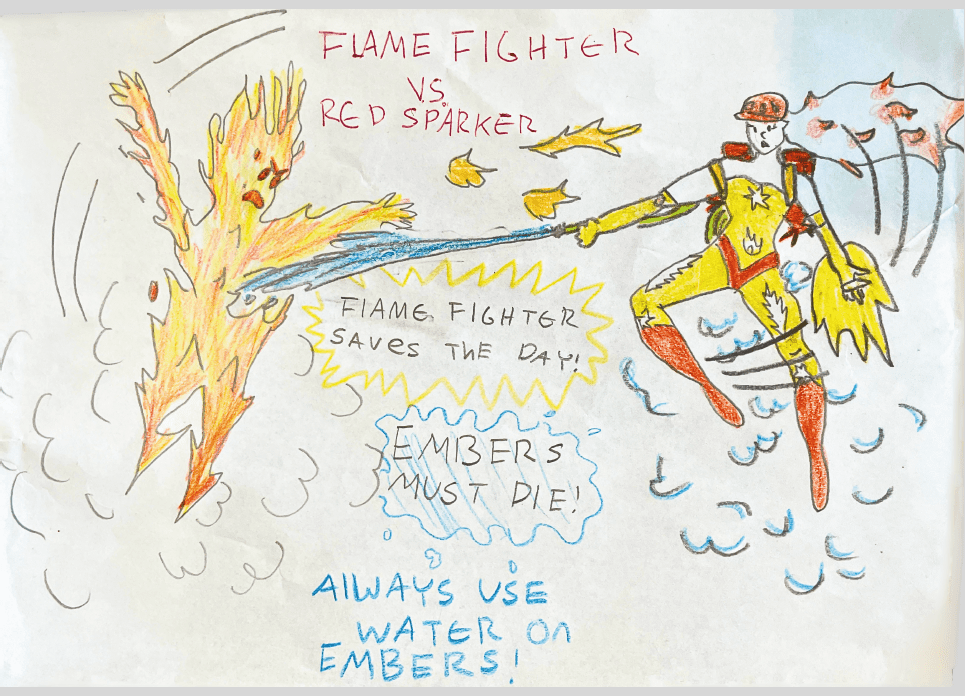 FLAME FIGHTER
VS.
RED SPARKER
FLAME FIGHTER
SAVES THE DAY!
EMBERS
MUST DIE!
ALWAYS USE
WATER ON
EMBERS!